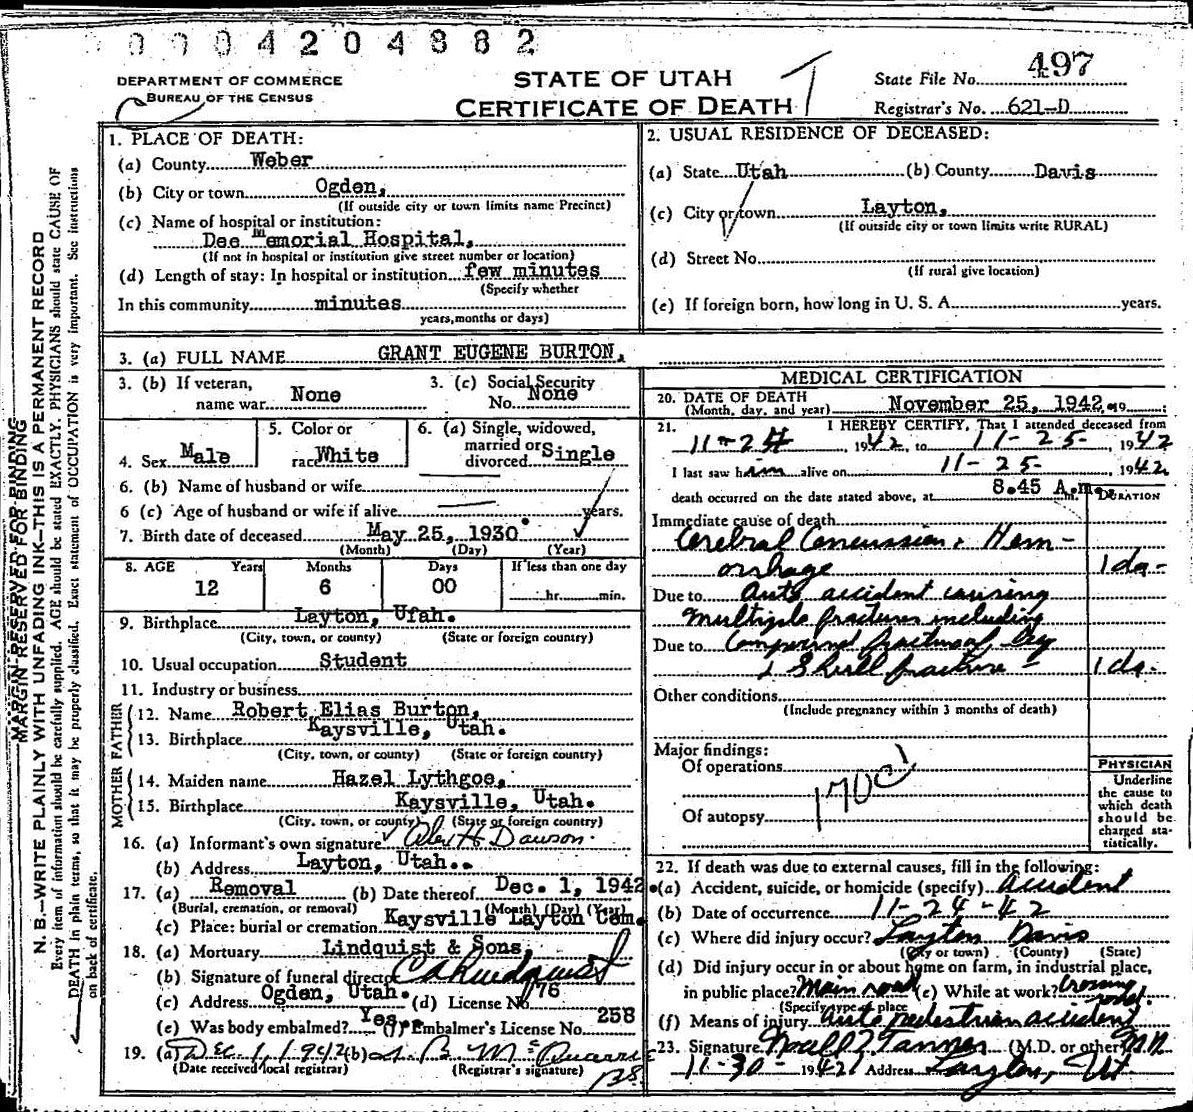 0004204882
DEPARTMENT OF COMMERCE
BUREAU OF THE CENSUS
STATE OF UTAH
CERTIFICATE OF DEATH
State File No. 497
Registrar's No. 621-D
MARGIN RESERVED FOR BINDING
N. B.—WRITE PLAINLY WITH UNFADING INK—THIS IS A PERMANENT RECORD
Every item of information should be carefully supplied. AGE should be stated EXACTLY. PHYSICIANS should state CAUSE OF
DEATH in plain terms, so that it may be properly classified. Exact statement of OCCUPATION is very important. See instructions
on back of certificate.
1. PLACE OF DEATH:
(a) County Weber
(b) City or town Ogden,
(If outside city or town limits name Precinct)
(c) Name of hospital or institution:
Dee Memorial Hospital,
(If not in hospital or institution give street number or location)
(d) Length of stay: In hospital or institution few minutes
(Specify whether
In this community minutes
years, months or days)
2. USUAL RESIDENCE OF DECEASED:
(a) State Utah (b) County Davis
(c) City or town Layton,
(If outside city or town limits write RURAL)
(d) Street No.
(If rural give location)
(e) If foreign born, how long in U. S. A. years.
3. (a) FULL NAME GRANT EUGENE BURTON,
3. (b) If veteran, name war None
3. (c) Social Security No. None
4. Sex Male
5. Color or race White
6. (a) Single, widowed, married or divorced Single
6. (b) Name of husband or wife
6 (c) Age of husband or wife if alive years.
7. Birth date of deceased May 25, 1930.
(Month) (Day) (Year)
8. AGE Years Months Days If less than one day
12 6 00 hr. min.
9. Birthplace Layton, Utah.
(City, town, or county) (State or foreign country)
10. Usual occupation Student
11. Industry or business
FATHER
12. Name Robert Elias Burton,
13. Birthplace Kaysville, Utah.
(City, town, or county) (State or foreign country)
MOTHER
14. Maiden name Hazel Lythgoe,
15. Birthplace Kaysville, Utah.
(City, town, or county) (State or foreign country)
16. (a) Informant's own signature H Dawson.
(b) Address Layton, Utah..
17. (a) Removal (b) Date thereof Dec. 1, 1942.
(Burial, cremation, or removal) (Month) (Day) (Year)
(c) Place: burial or cremation Kaysville Layton Cem.
18. (a) Mortuary Lindquist & Sons,
(b) Signature of funeral director C A Lindquist
(c) Address Ogden, Utah. (d) License No. 76
(e) Was body embalmed? Yes (f) Embalmer's License No. 258
19. (a) Dec 1, 1942 (b)
(Date received local registrar) (Registrar's signature)
MEDICAL CERTIFICATION
20. DATE OF DEATH
(Month, day, and year) November 25, 1942. 19
21. I HEREBY CERTIFY, That I attended deceased from
11-24, 1942, to 11-25-, 1942
I last saw him alive on 11-25-, 1942
death occurred on the date stated above, at 8.45 A.m.
DURATION
Immediate cause of death
Cerebral Concussion & Hem-
orrhage 1 da-
Due to Auto accident causing
multiple fractures including
Due to Compound fracture of leg
& Skull fracture - 1 da-
Other conditions
(Include pregnancy within 3 months of death)
Major findings:
Of operations
170c
Of autopsy
PHYSICIAN
Underline
the cause to
which death
should be
charged sta-
tistically.
22. If death was due to external causes, fill in the following:
(a) Accident, suicide, or homicide (specify) accident
(b) Date of occurrence 11-24-42
(c) Where did injury occur? Layton Davis
(City or town) (County) (State)
(d) Did injury occur in or about home on farm, in industrial place,
in public place? Main road (e) While at work? Crossing road.
(Specify type of place)
(f) Means of injury Auto pedestrian accident
23. Signature Noall Z Tanner (M.D. or other) M.D.
11-30-1942 Address Layton, Ut